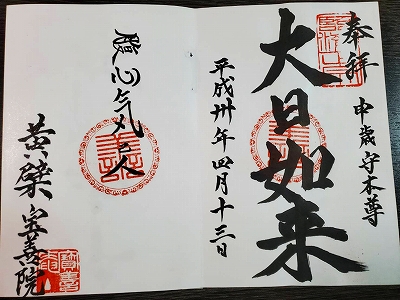 奉拝
申歳守本尊
大日如来
平成卅年四月十三日
腹心気己人
黄檗宝善院